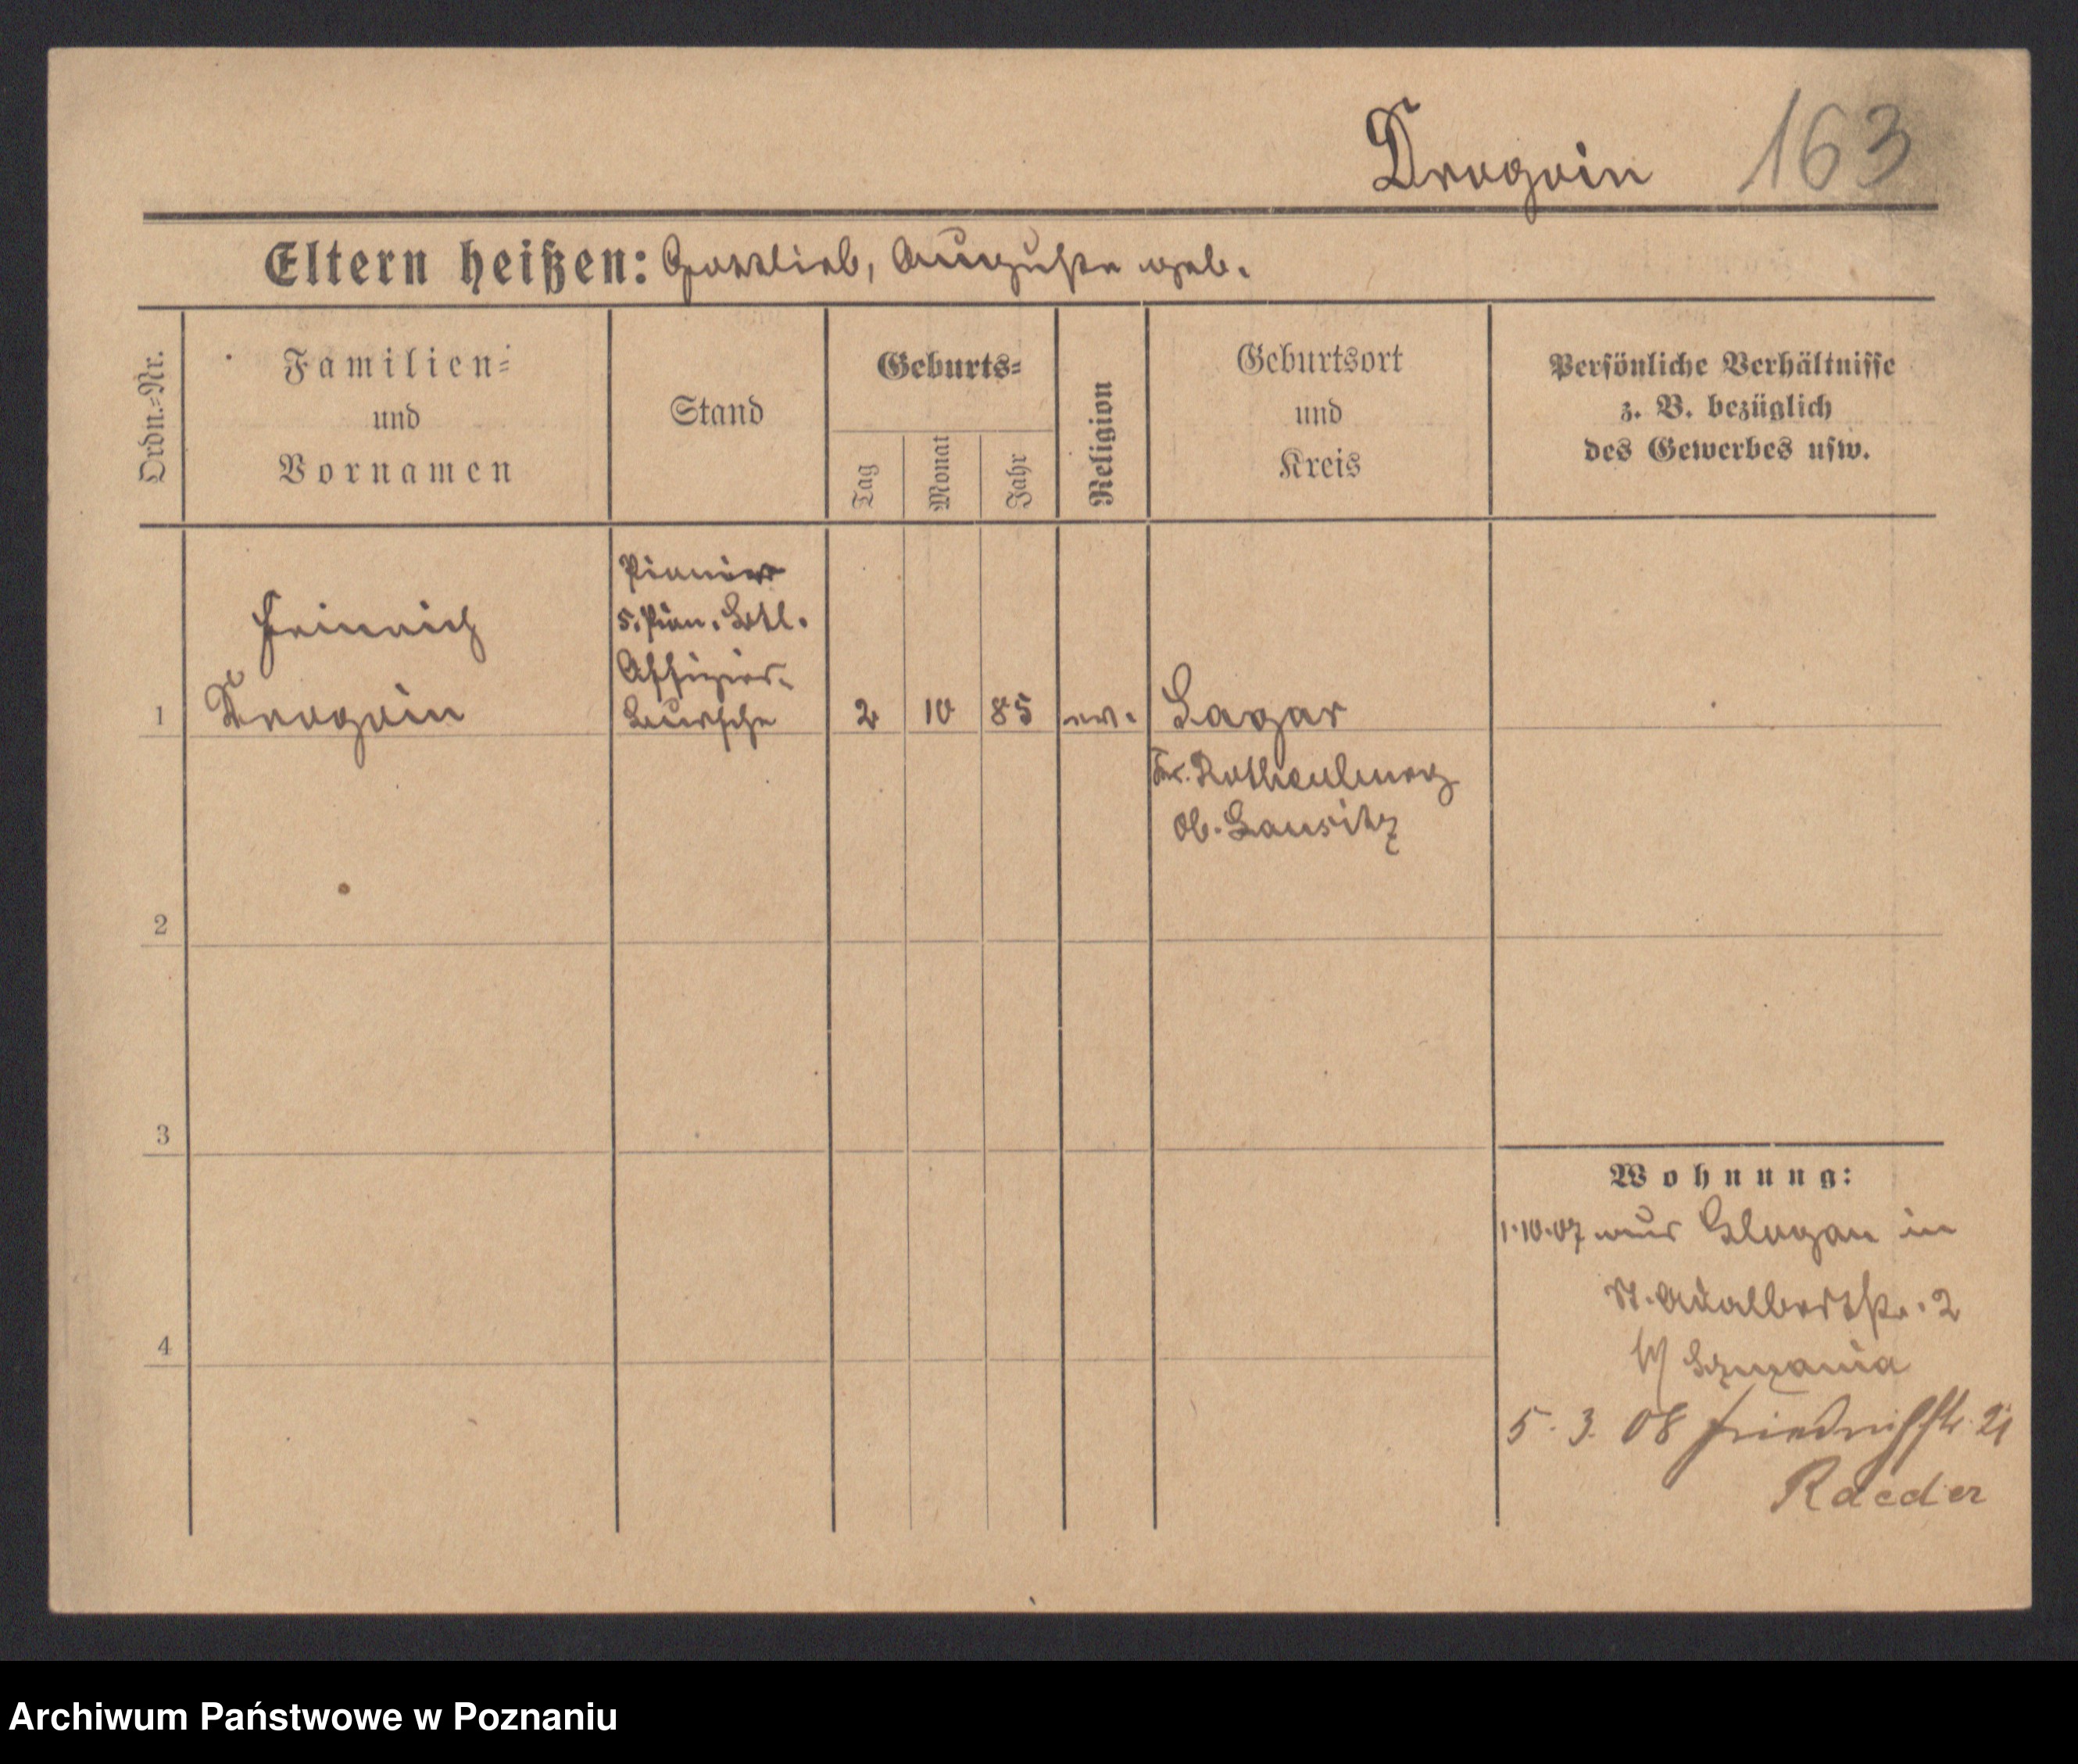 Drogoin 163
Eltern heißen: Gottlieb, Auguste geb.
Ordn.=Nr.
Familien=
und
Vornamen
Stand
Geburts=
Tag
Monat
Jahr
Religion
Geburtsort
und
Kreis
Persönliche Verhältnisse
z. B. bezüglich
des Gewerbes usw.
Heinrich
Drogoin
Pionier
5. Pion. Batl.
Offizier-
Bursche
1 2 10 85 ev. Sagar
Kr. Rothenburg
Ob. Lausitz
2
3
4
Wohnung:
1.10.07 aus Glogau in
St. Adalbertstr. 2
b/
5. 3. 08 Friedrichstr. 21
Raeder
Archiwum Państwowe w Poznaniu